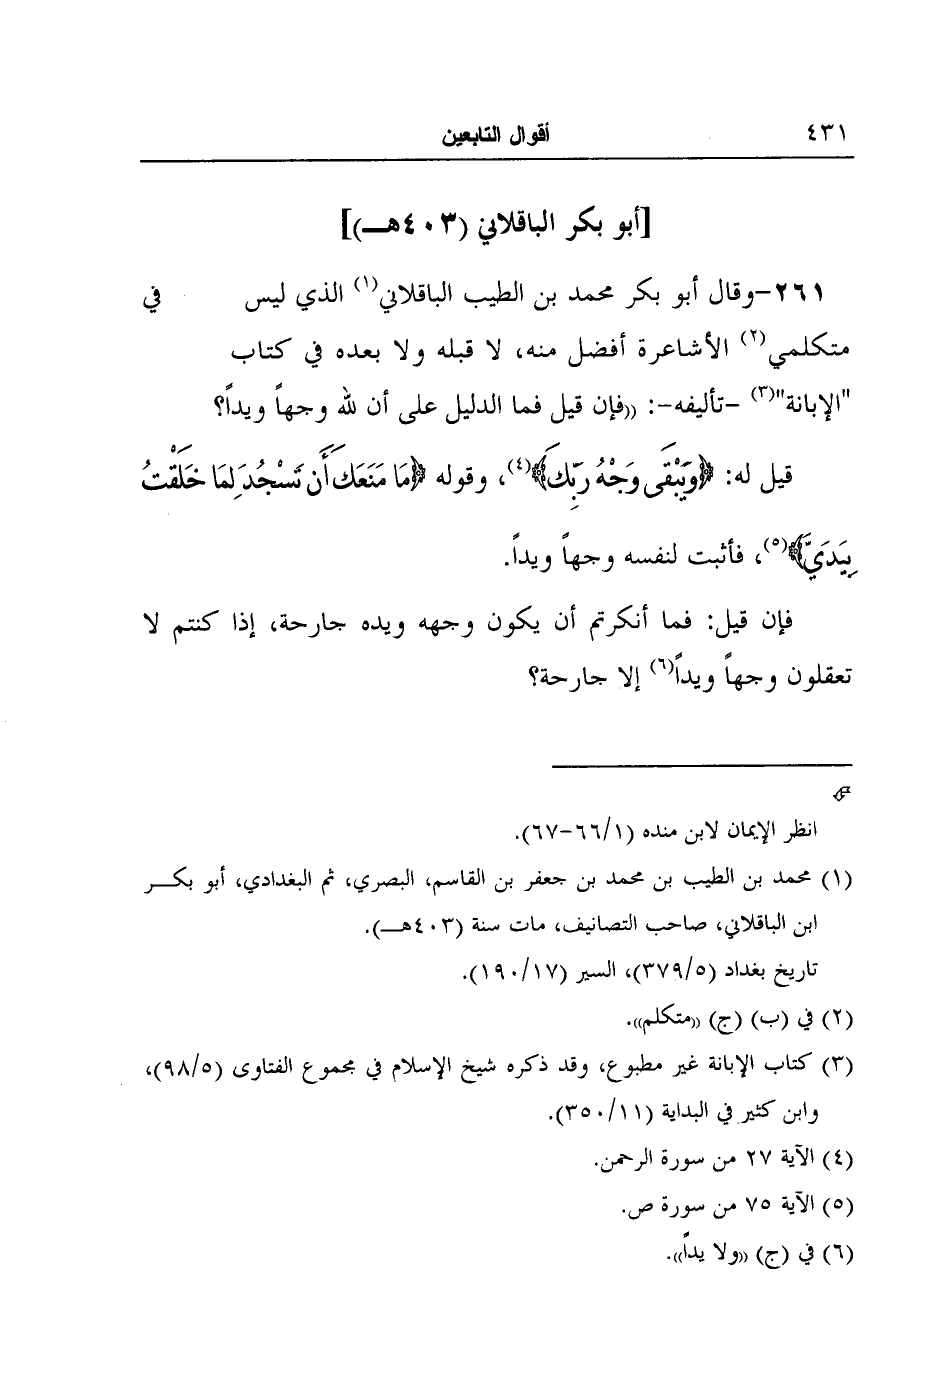 ٤٣١ أقوال التابعين
[أبو بكر الباقلاني (٤٠٣هـ)]
٢٦١-وقال أبو بكر محمد بن الطيب الباقلاني(١) الذي ليس في
متكلمي(٢) الأشاعرة أفضل منه، لا قبله ولا بعده في كتاب
"الإبانة"(٣) -تأليفه-: ((فإن قيل فما الدليل على أن لله وجهاً ويداً؟
قيل له: ﴿وَيَبْقَى وَجْهُ رَبِّكَ﴾(٤)، وقوله ﴿مَا مَنَعَكَ أَن تَسْجُدَ لِمَا خَلَقْتُ
بِيَدَيَّ﴾(٥)، فأثبت لنفسه وجهاً ويداً.
فإن قيل: فما أنكرتم أن يكون وجهه ويده جارحة، إذا كنتم لا
تعقلون وجهاً ويداً(٦) إلا جارحة؟
انظر الإيمان لابن منده (٦٦/١-٦٧).
(١) محمد بن الطيب بن محمد بن جعفر بن القاسم، البصري، ثم البغدادي، أبو بكـــر
ابن الباقلاني، صاحب التصانيف، مات سنة (٤٠٣هــ).
تاريخ بغداد (٣٧٩/٥)، السير (١٩٠/١٧).
(٢) في (ب) (ج) ((متكلم)).
(٣) كتاب الإبانة غير مطبوع، وقد ذكره شيخ الإسلام في مجموع الفتاوى (٩٨/٥)،
وابن كثير في البداية (٣٥٠/١١).
(٤) الآية ٢٧ من سورة الرحمن.
(٥) الآية ٧٥ من سورة ص.
(٦) في (ج) ((ولا يداً)).